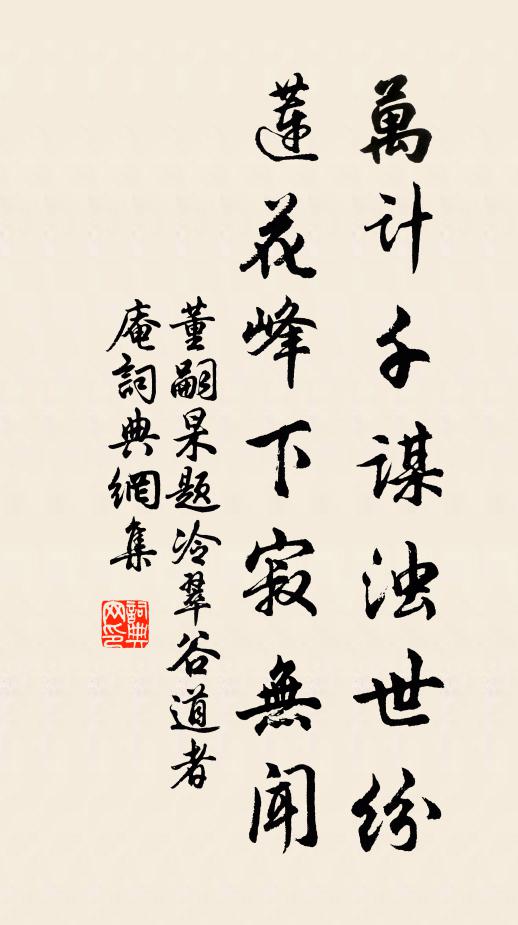 萬计千謀浊世纷
蓮花峰下寂無闻
董嗣杲题冷翠谷道者
庵詞典網集
詞典网印